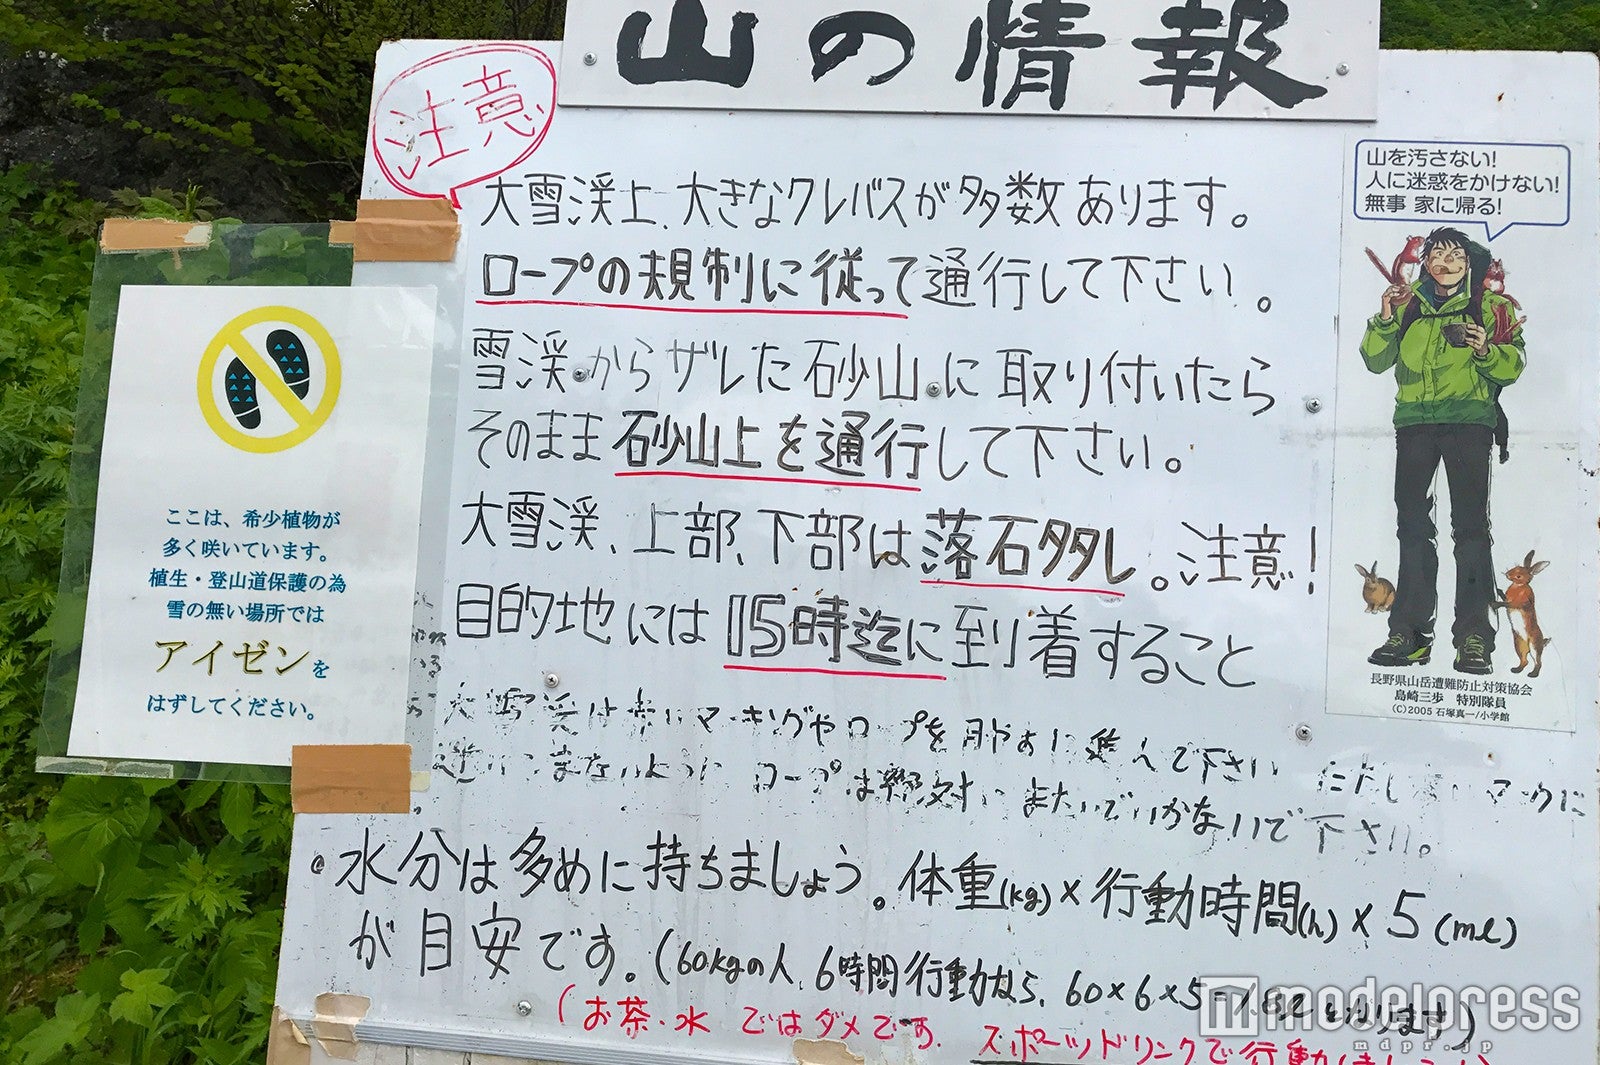 山の情報
注意
大雪渓上、大きなクレバスが多数あります。
ロープの規制に従って通行して下さい。
雪渓からザレた砂山に取り付いたら
そのまま砂山上を通行して下さい。
大雪渓、上部、下部は落石多し。注意!
目的地には15時迄に到着すること
大雪渓は赤いマーキングやロープを目やすに進んで下さい
ロープは絶対にまたいでいかないで下さい。
・水分は多めに持ちましょう。体重(kg)×行動時間(h)×5(ml)
が目安です。(60kgの人、6時間行動なら、60×6×5=1.8ℓとなります)
(お茶・水ではダメです。スポーツドリンクで行動しましょう)
ここは、希少植物が
多く咲いています。
植生・登山道保護の為
雪の無い場所では
アイゼンを
はずしてください。
山を汚さない!
人に迷惑をかけない!
無事 家に帰る!
長野県山岳遭難防止対策協会
島崎三歩 特別隊員
(C)2005 石塚真一/小学館
modelpress
mdpr.jp